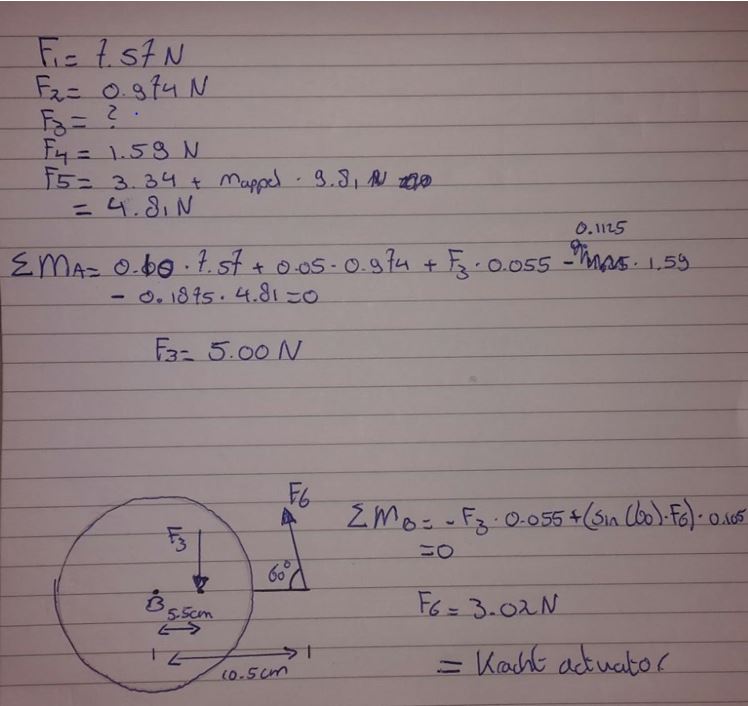 F1 = 7.57 N
F2 = 0.974 N
F3 = ?
F4 = 1.59 N
F5 = 3.34 + mappel · 9.81 N
= 4.81 N
0.1125
ΣMA = 0.60 · 7.57 + 0.05 · 0.974 + F3 · 0.055 - · 1.59
- 0.1875 · 4.81 = 0
F3 = 5.00 N
F6
F3
60°
B
5.5cm
10.5cm
ΣMB = - F3 · 0.055 + (sin(60) · F6) · 0.105
= 0
F6 = 3.02 N
= Kracht actuator